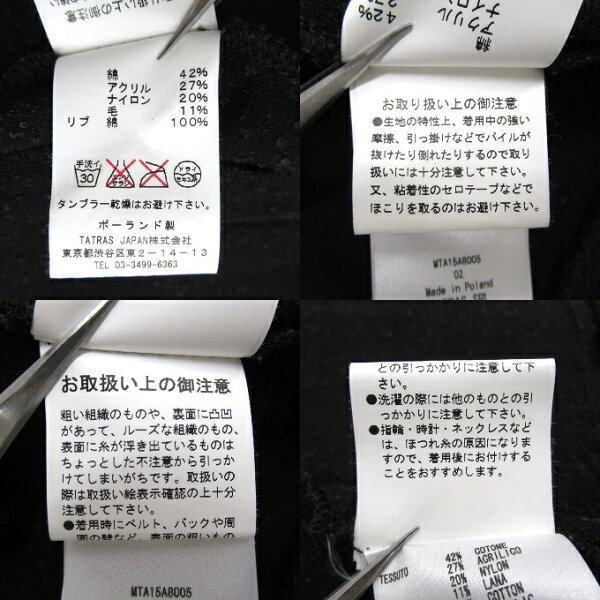 り扱い上の御注意
綿 42%
アクリル 27%
ナイロン 20%
毛 11%
リブ 綿 100%
手洗イ
30
ドライ
セキユ系
タンブラー乾燥はお避け下さい。
ポーランド製
TATRAS JAPAN株式会社
東京都渋谷区東2-14-13
TEL 03-3499-6363
42%
綿
アクリル
ナイロン
お取り扱い上の御注意
●生地の特性上、着用中の強い
摩擦、引っ掛けなどでパイルが
抜けたり倒れたりするので取り
扱いには十分注意して下さい。
又、粘着性のセロテープなどで
ほこりを取るのはお避け下さい。
MTA15A8005
02
Made in Poland
お取扱い上の御注意
粗い組織のものや、裏面に凸凹
があって、ルーズな組織のもの、
表面に糸が浮き出ているものは
ちょっとした不注意から引っか
けてしまいがちです。取扱いの
際は取扱い絵表示確認の上十分
注意して下さい。
●着用時にベルト、バックや周
MTA15A8005
との引っかかりに注意して下
さい。
●洗濯の際には他のものとの引
っかかりに注意して下さい。
●指輪・時計・ネックレスなど
は、ほつれ糸の原因になりま
すので、着用後にお付けする
ことをおすすめします。
42% COTONE
27% ACRILICO
TESSUTO 20% NYLON
LANA
11% COTTON